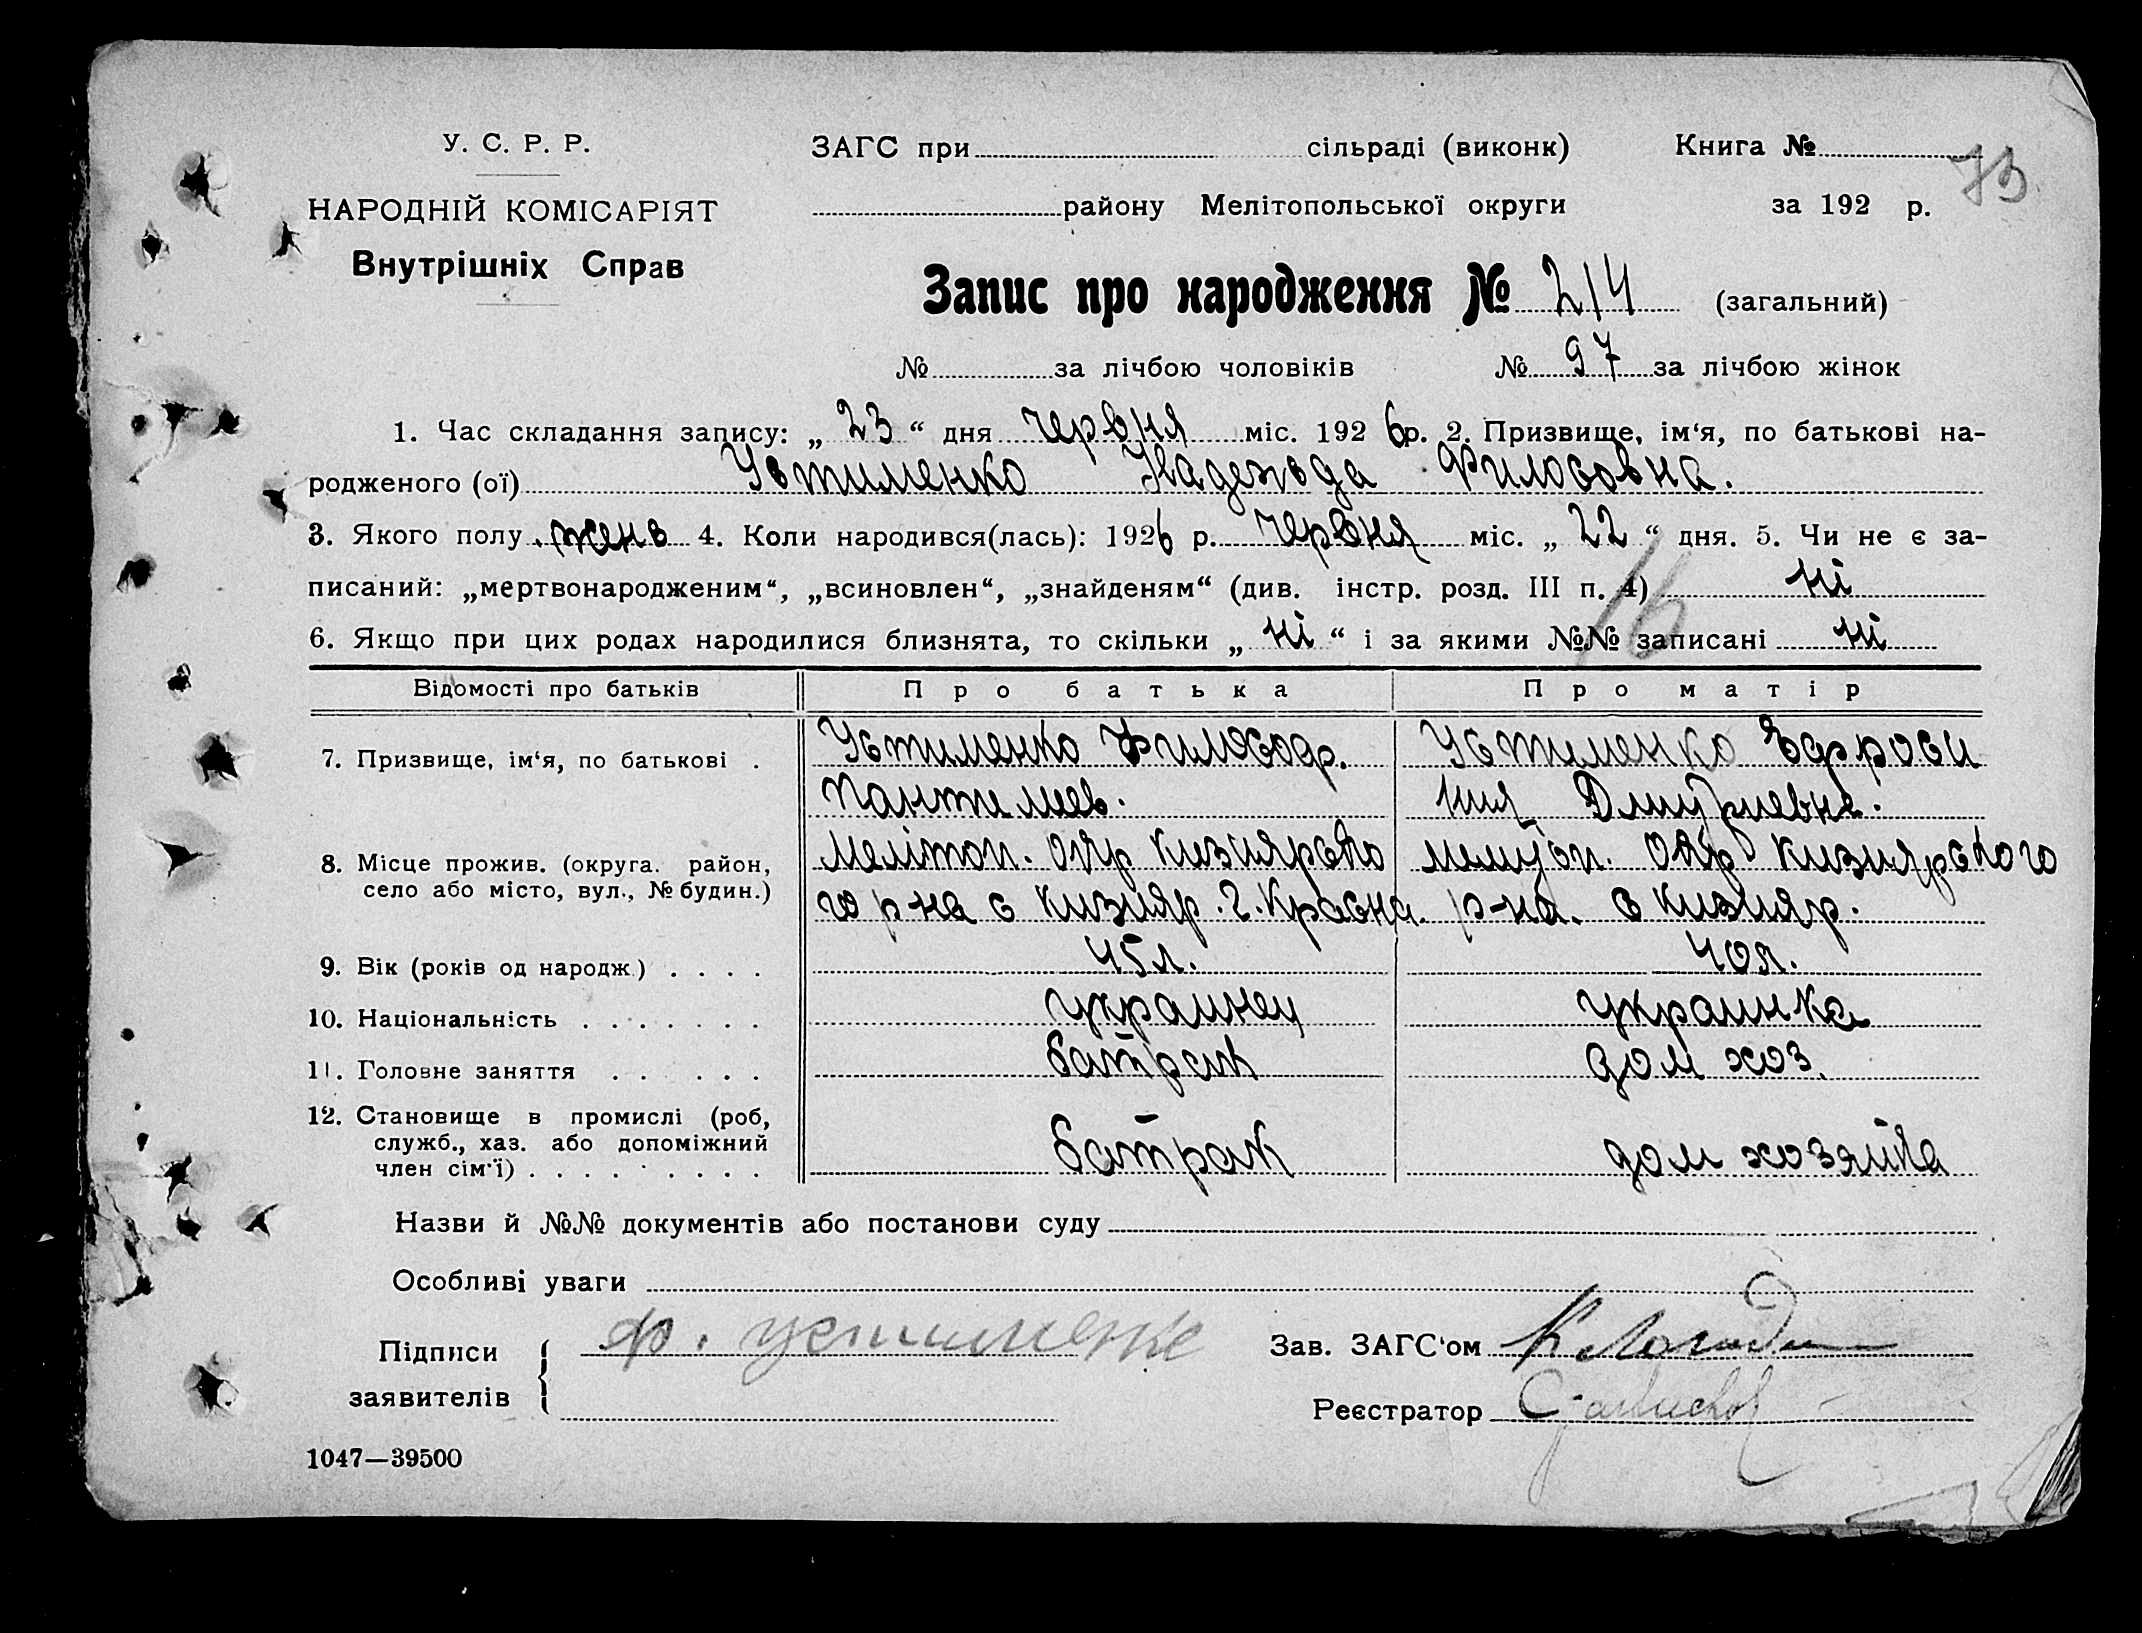 У. С. Р. Р.
НАРОДНІЙ КОМІСАРІЯТ
Внутрішніх Справ
ЗАГС при сільраді (виконк) Книга №
73
району Мелітопольської округи за 192 р.
Запис про народження № 214 (загальний)
№ за лічбою чоловіків № 97 за лічбою жінок
1. Час складання запису: „ 23 “ дня червня міс. 1926 р. 2. Призвище, ім‘я, по батькові на-
родженого (ої) Устименко Надежда Филосовна.
3. Якого полу жена 4. Коли народився(лась): 1926 р. червня міс. „ 22 “ дня. 5. Чи не є за-
писаний: „мертвонародженим“, „всиновлен“, „знайденям“ (див. інстр. розд. III п. 4) ні
16
6. Якщо при цих родах народилися близнята, то скільки „ ні “ і за якими №№ записані ні
Відомості про батьків Про батька Про матір
7. Призвище, ім‘я, по батькові . Устименко Философ. Устименко Ефроси
Пантилеев. ния Дмитриевна.
8. Місце прожив. (округа. район, Мелітоп. окр Кизиярско Мелитоп. окр Кизиярского
село або місто, вул., № будин.) го р-на с Кизияр. г. Красна р-на. с Кизияр.
9. Вік (років од народж.) . . . . 45 л. 40 л.
10. Національність . . . . . . . украинец украинка
11. Головне заняття . . . . . батрак дом хоз.
12. Становище в промислі (роб,
служб., хаз. або допоміжний батрак дом хозяйка
член сім‘ї) . . . . . . . . .
Назви й №№ документів або постанови суду
Особливі уваги
Підписи заявителів ф. устименко
Зав. ЗАГС‘ом
Реєстратор
1047—39500